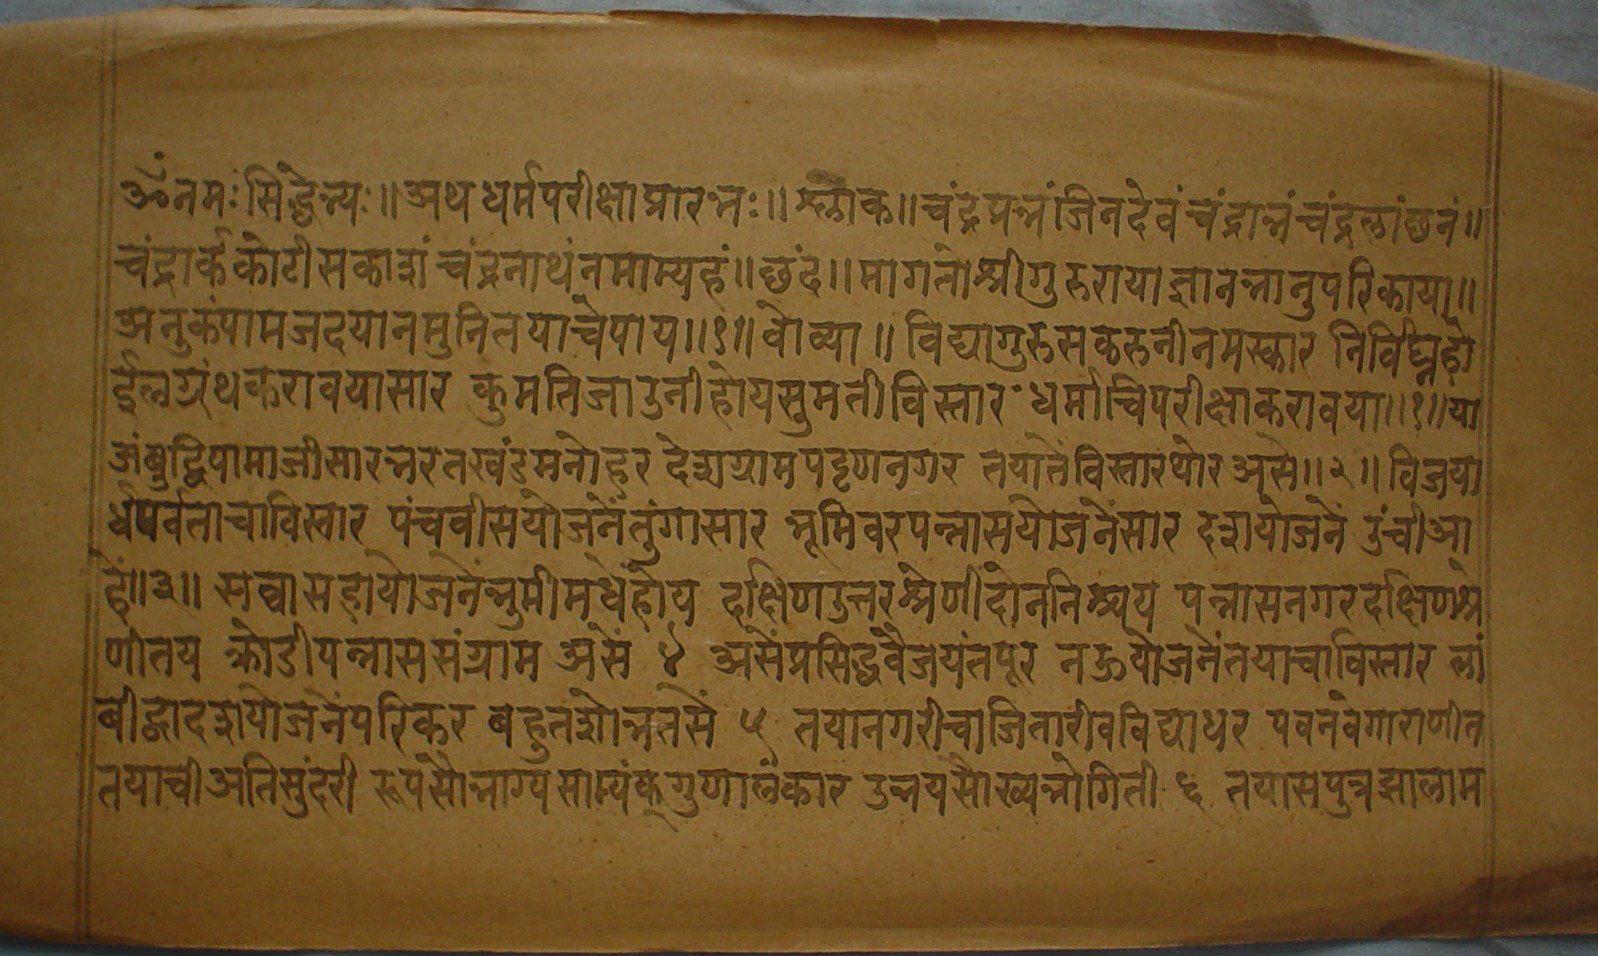 ॐनमः सिद्धेभ्यः॥ अथ धर्मपरीक्षा प्रारभ्नः॥ श्लोक॥ चंद्रप्रभं जिनदेवं चंद्राभं चंद्रलांछनं॥
चंद्रार्ककोटीसकाशं चंद्रनाथं नमाम्यहं॥ छंद॥ मागतो श्रीगुरुराया ज्ञानभानुपरिकाया॥
अनुकंपामजदयानमुनितयाचेपाय॥१॥ वोव्या॥ विद्यागुरुसकरुनीनमस्कार निर्विघ्नहो
ईलग्रंथकरावयासार कुमतिजाउनीहोयसुमतीविस्तार धर्माचिपरीक्षाकरावया॥१॥या
जंबुद्विपामाजीसारभरतखंडमनोहर देशग्रामपट्टणनगर तयातेंविस्तारथोरअसे॥२॥ विजया
र्धपर्वताचाविस्तार पंचवीसयोजनेंतुंगासार भूमिवरपन्नासयोजनेंसार दशयोजनें उंचीआ
हे॥३॥ सव्वासहायोजनेंभुमीमधेंहोय दक्षिणउत्तरश्रेणीदोननिश्चय पन्नासनगरदक्षिणश्रे
णीतय क्रोडीपन्नाससंग्राम असें ४ असेंप्रसिद्धवैजयंतपूर नऊयोजनेंतयाचाविस्तार लां
बीद्वादशयोजनेंपरिकर बहुतशोभतसें ५ तयानगरीचाजितारीवविद्याधर पवनवेगाराणीत
तयाची अतिसुंदरी रूपसौभाग्य गुणालंकार उभयसौख्यभोगिती ६ तयासपुत्रझालाम